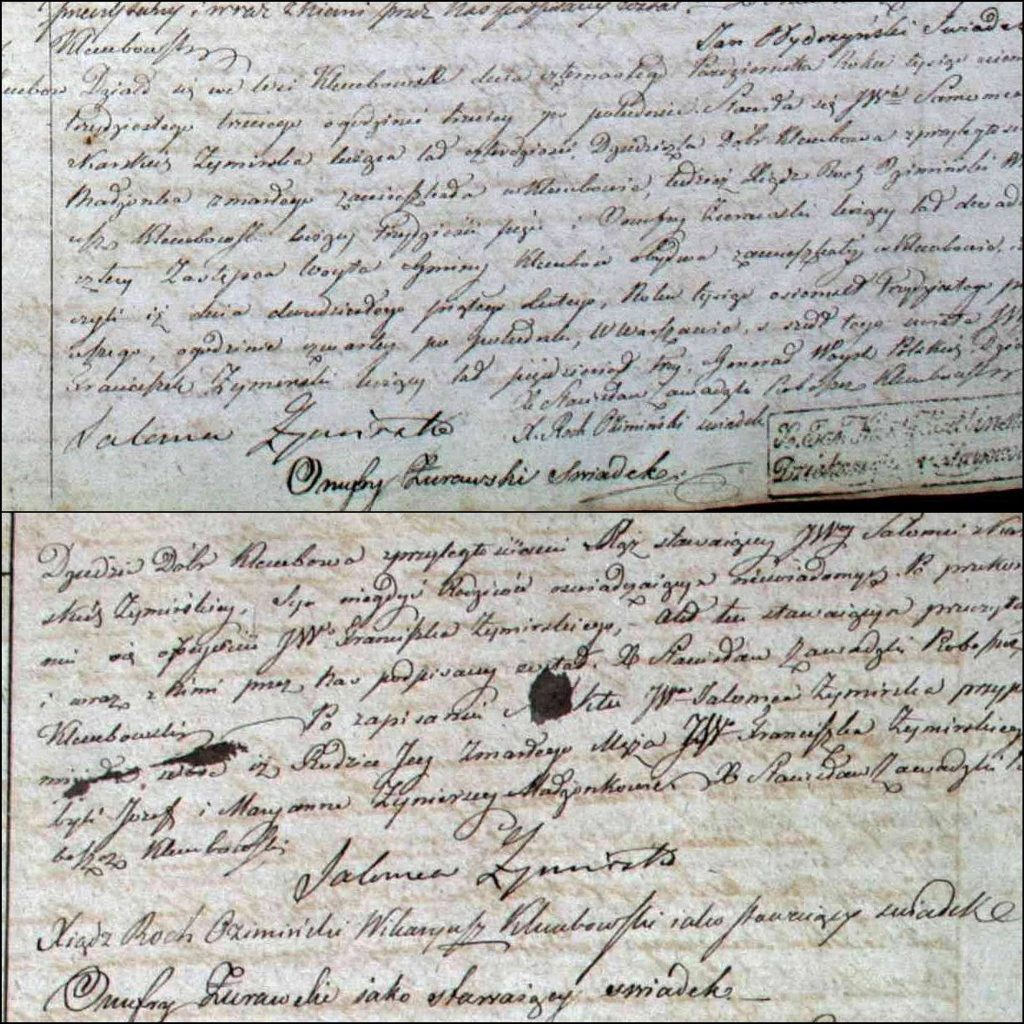 i wraz z Niemi przez Nas podpisany został.
Klembowski Jan Wydrzyński Swiadek
Działo się we Wsi Klembowie dnia czternastego Pazdziernika Roku tysiąc
trzydziestego trzeciego o godzinie trzeciey po południu. Stawiła się JWna Salomea
Żymirska licząca lat czterdzieści Dziedziczka Dóbr Klembowa z przyległo
Małżonka zmarłego zamieszkała w Klembowie, tudzież Xiądz Roch Ozimiński
Klembowski liczący trzydzieści pięć i Onufry Żurawski liczący lat dwad
cztery Zastępca Woyta Gminy Klembów obydwa zamieszkali w Klembowie,
czyli iż dnia dwudziestego piątego Lutego, Roku tysiąc osiemset trzydziestego
szego, o godzinie czwartey po południu, w Warszawie, umarł JW
Franciszek Żymirski liczący lat pięćdziesiąt trzy, Generał Woysk Polskich, Dzie
X Stanisław Zawadzki Proboszcz Klembowski
Salomea Żymirska X. Roch Oziminski swiadek
Onufry Żurawski Swiadek.
Dziedzic Dóbr Klembowa z przyległościami Mąż stawaiącey JWey Salomei
Żymirskiey, Syn niegdyś Rodziców oświadczaiącym niewiadomych. Po przekona
niu się o zeyściu JWo Franciszka Żymirskiego, Akt ten stawaiącym przeczyta
i wraz z Niemi przez Nas podpisany został. X Stanisław Zawadzki Proboszcz
Klembowski Po zapisaniu Aktu JWna Salomea Żymirska przypo
iż Rodzice Jey Zmarłego Męża JW Franciszka Żymirskiego
byli Jozef i Maryanna Żymirscy Małżonkowie. X Stanisław Zawadzki Pro
boszcz Klembowski
Salomea Żymirska
Xiądz Roch Ozimiński Wikaryusz Klembowski iako stawaiący swiadek
Onufry Żurawski iako stawaiący swiadek